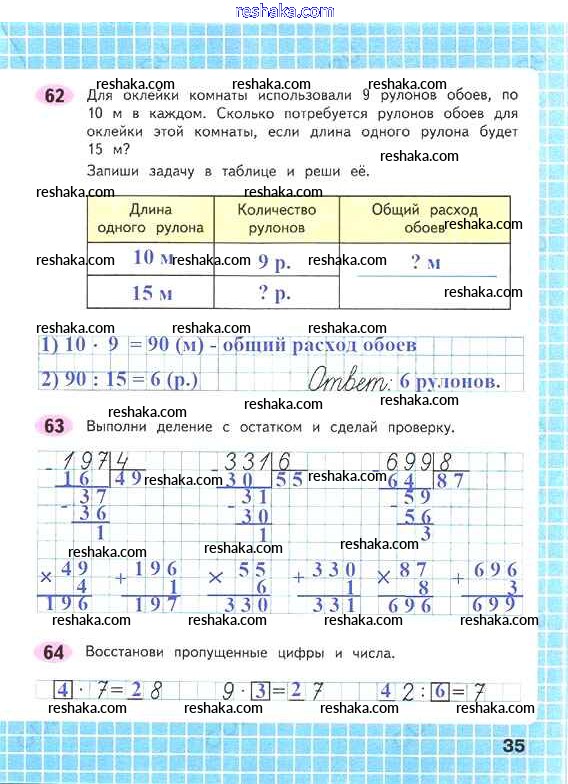 www.reshaka.com
reshaka.com
62 Для оклейки комнаты использовали 9 рулонов обоев, по
reshaka.com
10 м в каждом. Сколько потребуется рулонов обоев для
оклейки этой комнаты, если длина одного рулона будет
15 м?
reshaka.com reshaka.com
Запиши задачу в таблице и реши её.
reshaka.com reshaka.com
Длина одного рулона | Количество рулонов | Общий расход обоев
reshaka.com
10 м | 9 р. | ? м
reshaka.com reshaka.com reshaka.com
15 м | ? р.
reshaka.com
reshaka.com reshaka.com reshaka.com
1) 10 · 9 = 90 (м) - общий расход обоев
reshaka.com
2) 90 : 15 = 6 (р.) Ответ: 6 рулонов.
reshaka.com reshaka.com
63 Выполни деление с остатком и сделай проверку.
reshaka.com
- 197 4 - 331 6 - 699 8
16 49 30 55 64 87
reshaka.com reshaka.com
- 37 - 31 - 59
36 30 56
reshaka.com
1 1 3
reshaka.com reshaka.com
× 49 + 196 × 55 + 330 × 87 + 696
4 1 6 1 8 3
196 197 330 331 696 699
reshaka.com reshaka.com reshaka.com
64 Восстанови пропущенные цифры и числа.
reshaka.com reshaka.com
4 · 7 = 28 9 · 3 = 27 42 : 6 = 7
reshaka.com reshaka.com reshaka.com
35
www.reshaka.com